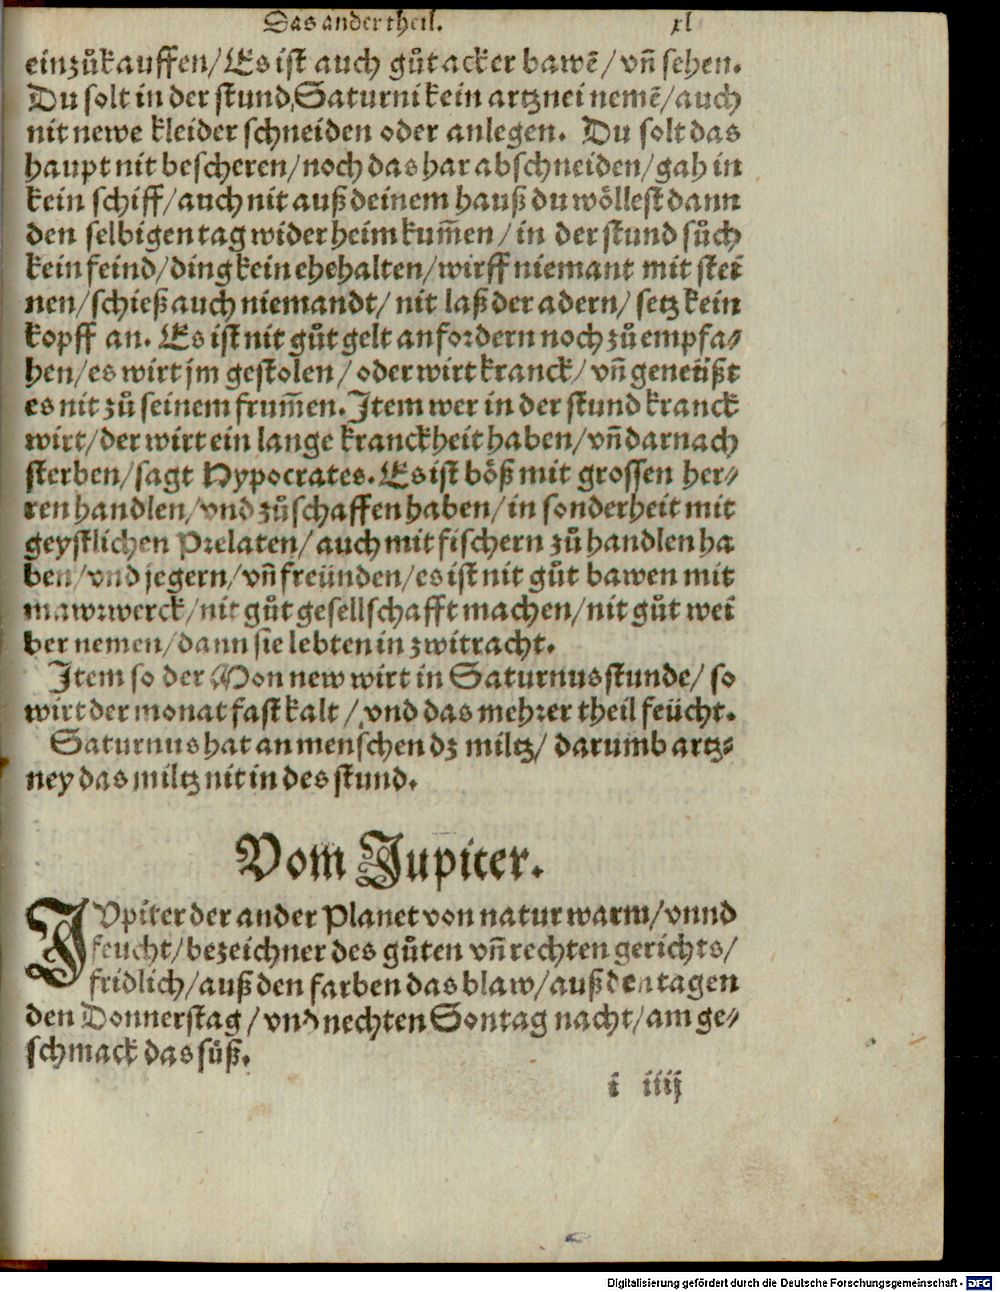 Das ander theil. xl
einzůkauffen/ Es ist auch gůt acker bawē/ vñ sehen.
Du solt in der stund Saturni kein artznei nemē/ auch
nit newe kleider schneiden oder anlegen. Du solt das
haupt nit bescheren/ noch das har abschneiden/ gah in
kein schiff/ auch nit auß deinem hauß du wöllest dann
den selbigen tag wider heim kum̄en/ in der stund sůch
kein feind/ ding kein ehehalten/ wirff niemant mit stei
nen/ schieß auch niemandt/ nit laß der adern/ setz kein
kopff an. Es ist nit gůt gelt anfordern noch zů empfa⸗
hen/ es wirt jm gestolen/ oder wirt kranck/ vñ geneüßt
es nit zů seinem frum̄en. Item wer in der stund kranck
wirt/ der wirt ein lange kranckheit haben/ vñ darnach
sterben/ sagt Hypocrates. Es ist böß mit grossen her⸗
ren handlen/ vnd zů schaffen haben/ in sonderheit mit
geystlichen Prelaten/ auch mit fischern zů handlen ha
ben/ vnd jegern/ vñ freünden/ es ist nit gůt bawen mit
mawrwerck/ nit gůt gesellschafft machen/ nit gůt wei
ber nemen/ dann sie lebten in zwitracht.
Item so der Mon new wirt in Saturnus stunde/ so
wirt der monat fast kalt/ vnd das mehrer theil feücht.
Saturnus hat an menschen dz miltz/ darumb artz⸗
ney das miltz nit in des stund.
Vom Jupiter.
JVpiter der ander Planet von natur warm/ vnnd
feucht/ bezeichner des gůten vñ rechten gerichts/
fridlich/ auß den farben das blaw/ auß den tagen
den Donnerstag/ vnd nechten Sontag nacht/ am ge⸗
schmack das süß.
i iiij
Digitalisierung gefördert durch die Deutsche Forschungsgemeinschaft - DFG